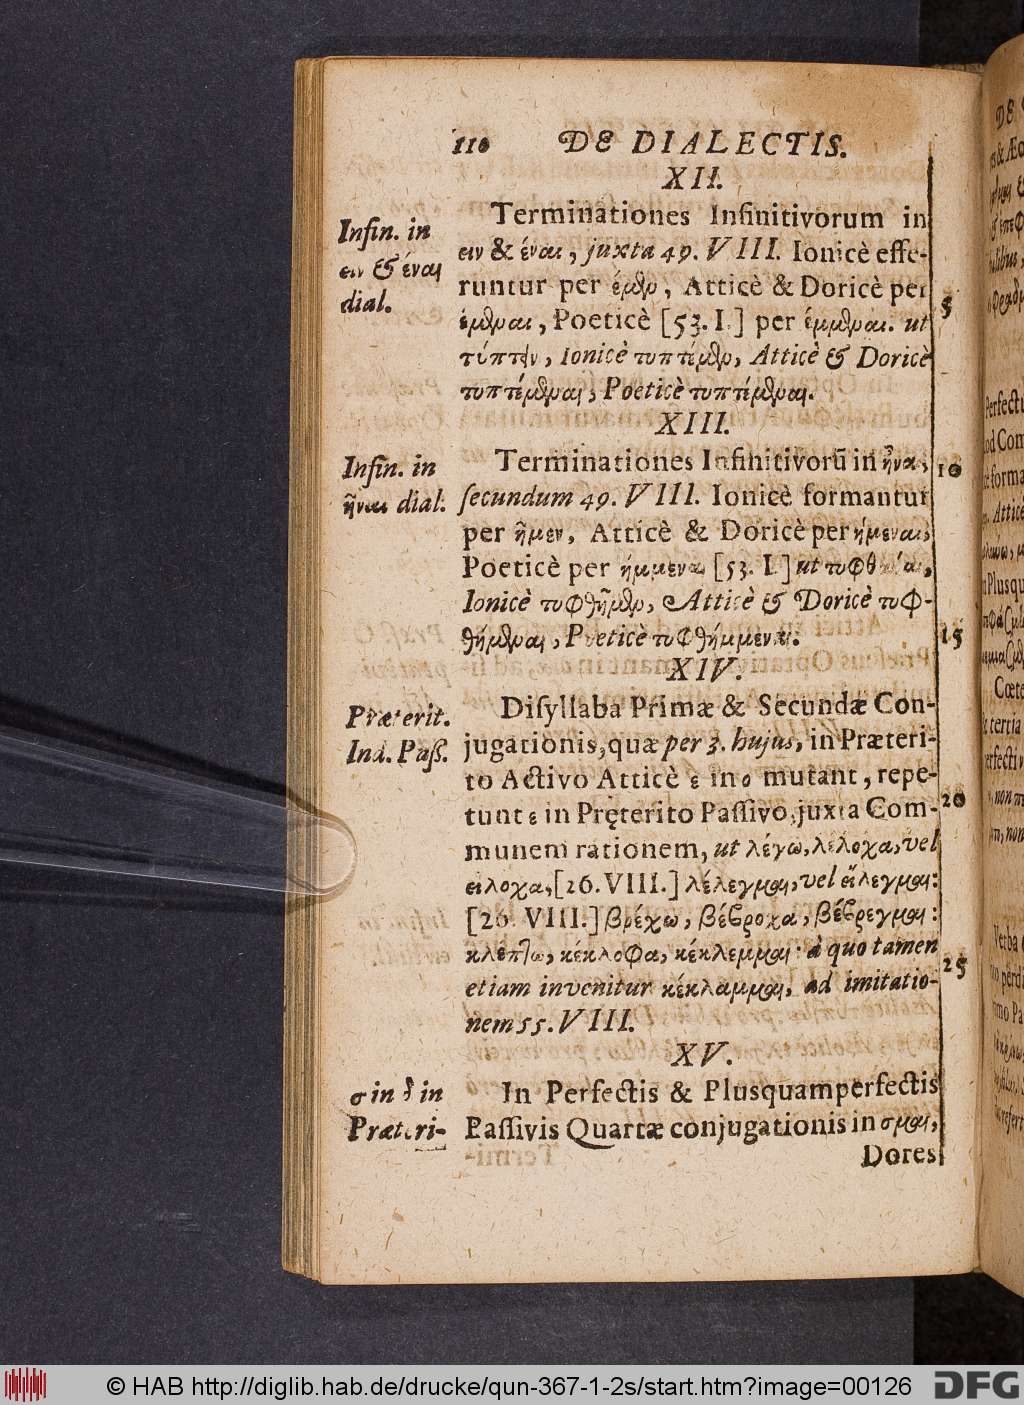 110 DE DIALECTIS.
XII.
Infin. in
ειν & έναι
dial.
Terminationes Infinitivorum in
ειν & έναι, juxta 49. VIII. Ionicè effe-
runtur per έμεν, Atticè & Doricè per
έμεναι, Poeticè [53. I.] per έμμεναι. ut
τύπτειν, Ionicè τυπτέμεν, Atticè & Doricè
τυπτέμεναι, Poeticè τυπτέμεναι.
5
XIII.
Infin. in
ῆναι dial.
Terminationes Infinitivorū in ῆναι,
ſecundum 49. VIII. Ionicè formantur
per ῆμεν, Atticè & Doricè per ήμεναι,
Poeticè per ήμμεναι [53. I.] ut
Ionicè τυφθῆμεν, Atticè & Doricè τυφ-
θήμεναι, Poeticè τυφθήμμεναι.
10
15
XIV.
Præterit.
Ind. Paſſ.
Diſyllaba Primæ & Secundæ Con-
jugationis, quæ per 3. hujus, in Præteri-
to Activo Atticè ε in ο mutant, repe-
tunt ε in Pręterito Paſſivo, juxta Com-
munem rationem, ut λέγω, λέλοχα, vel
ειλοχα, [26. VIII.] λέλεγμαι, vel είλεγμαι:
[26. VIII.] βρέχω, βέβροχα, βέβρεγμαι:
κλέπτω, κέκλοφα, κέκλεμμαι: à quo tamen
etiam invenitur κέκλαμμαι, ad imitatio-
nem 55. VIII.
20
25
XV.
σ in δ in
Præteri-
In Perfectis & Plusquamperfectis
Paſſivis Quartæ conjugationis in σμαι,
Dores
© HAB http://diglib.hab.de/drucke/qun-367-1-2s/start.htm?image=00126
DFG